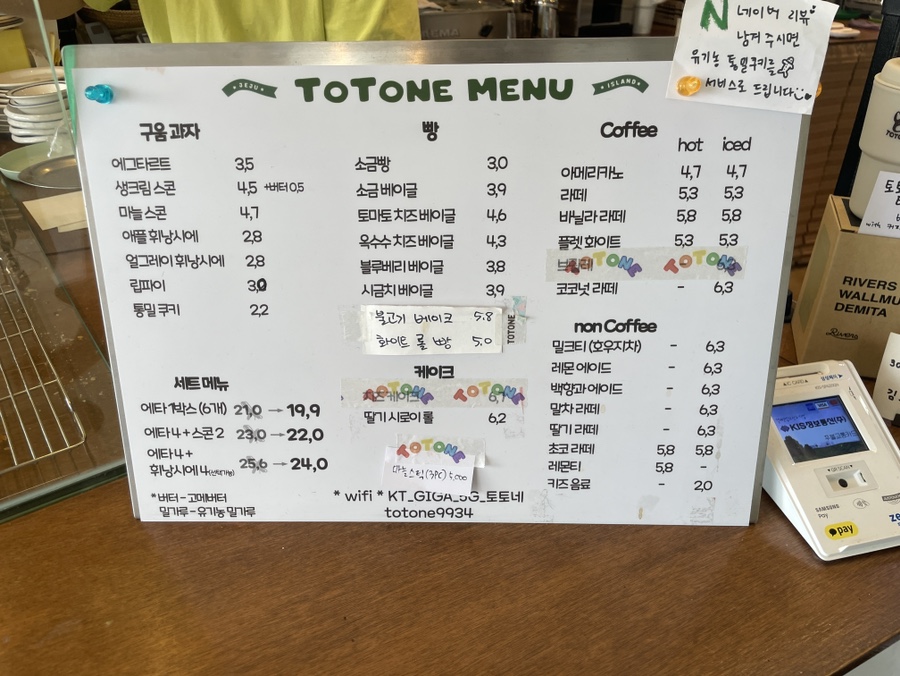 N 네이버 리뷰
남겨 주시면
유기농 통밀쿠키를
서비스로 드립니다
JEJU TOTONE MENU ISLAND
구움 과자
에그타르트 3,5
생크림 스콘 4,5 +버터 0,5
마늘 스콘 4,7
애플 휘낭시에 2,8
얼그레이 휘낭시에 2,8
립파이 3,0
통밀 쿠키 2,2
세트 메뉴
에타 1박스 (6개) 21,0 → 19,9
에타 4 + 스콘 2 23,0 → 22,0
에타 4 +
휘낭시에 4 (선택가능) 25,6 → 24,0
*버터 - 고메버터
밀가루 - 유기농 밀가루
빵
소금빵 3,0
소금 베이글 3,9
토마토 치즈 베이글 4,6
옥수수 치즈 베이글 4,3
블루베리 베이글 3,8
시금치 베이글 3,9
불고기 베이크 5.8
화이트 롤 빵 5.0
TOTONE
케이크
TOTONE TOTONE
딸기 시로이 롤 6,2
TOTONE
마늘스틱(3PC) 5,000
* wifi * KT_GIGA_5G_토토네
totone9934
Coffee
hot iced
아메리카노 4,7 4,7
라떼 5,3 5,3
바닐라 라떼 5,8 5,8
플렛 화이트 5,3 5,3
TOTONE TOTONE
코코넛 라떼 - 6,3
non Coffee
밀크티 (호우지차) - 6,3
레몬 에이드 - 6,3
백향과 에이드 - 6,3
말차 라떼 - 6,3
딸기 라떼 - 6,3
초코 라떼 5,8 6,3
레몬티 5,8 -
키즈 음료 - 2,0
RIVERS
WALLMU
DEMITA
Rivers
KIS정보통신(주)
SAMSUNG
Pay
pay